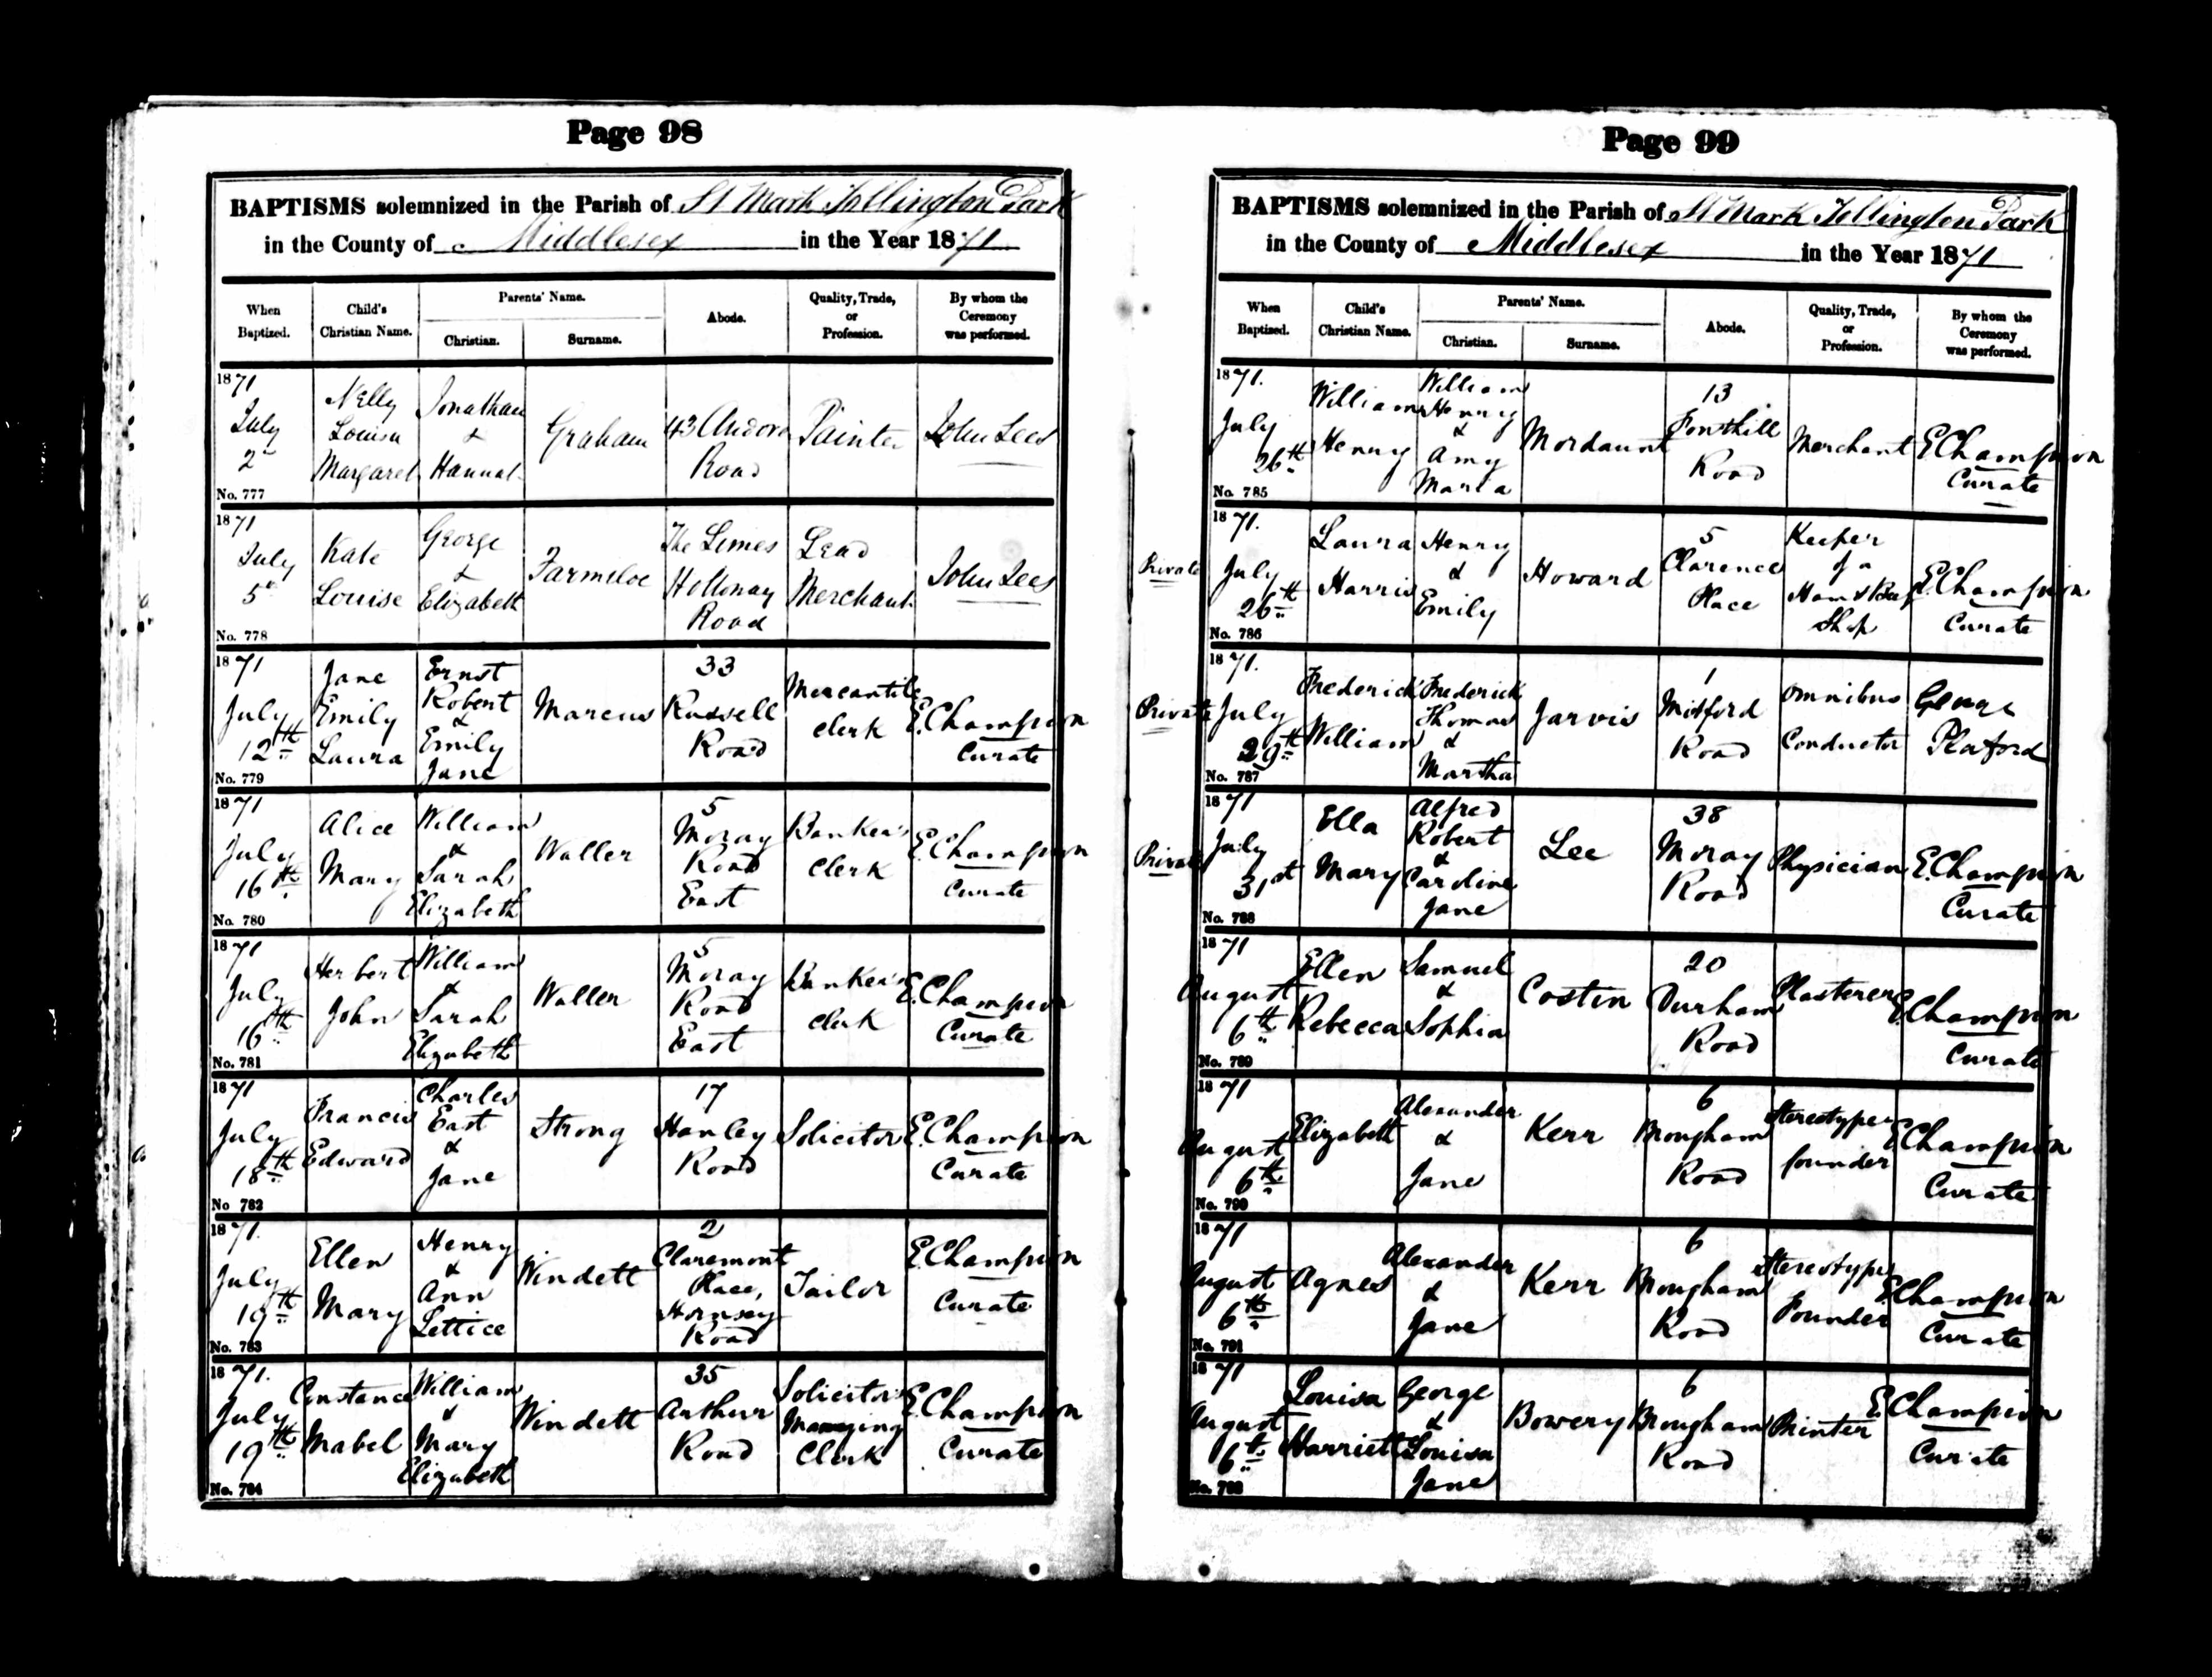 Page 98
BAPTISMS solemnized in the Parish of St Mark Tollington Park
in the County of Middlesex in the Year 1871
When Baptized.
Child's Christian Name.
Parents' Name.
Christian.
Surname.
Abode.
Quality, Trade, or Profession.
By whom the Ceremony was performed.
1871 July 2d
Nelly Louisa Margaret
Jonathan & Hannah
Graham
43 Andover Road
Painter
John Lees
No. 777
1871 July 5th
Kate Louise
George & Elizabeth
Farmiloe
The Limes Holloway Road
Lead Merchant
John Lees
No. 778
1871 July 12th
Jane Emily Laura
Ernst Robert & Emily Jane
Marcus
33 Russell Road
Mercantile Clerk
E. Champion Curate
No. 779
1871 July 16th
Alice Mary
William & Sarah Elizabeth
Waller
5 Moray Road East
Banker's Clerk
E. Champion Curate
No. 780
1871 July 16th
Herbert John
William & Sarah Elizabeth
Waller
5 Moray Road East
Banker's Clerk
E. Champion Curate
No. 781
1871 July 18th
Francis Edward
Charles East & Jane
Strong
17 Hanley Road
Solicitor
E. Champion Curate
No 782
1871. July 19th
Ellen Mary
Henry & Ann Lettice
Windett
2 Claremont Place, Hornsey Road
Tailor
E. Champion Curate
No. 783
1871. July 19th
Constance Mabel
William & Mary Elizabeth
Windett
35 Arthur Road
Solicitor's Managing Clerk
E. Champion Curate
No. 784
Page 99
BAPTISMS solemnized in the Parish of St Mark Tollington Park
in the County of Middlesex in the Year 1871
When Baptized.
Child's Christian Name.
Parents' Name.
Christian.
Surname.
Abode.
Quality, Trade, or Profession.
By whom the Ceremony was performed.
1871. July 26th
William Henry
William Henry & Amy Maria
Mordaunt
13 Fonthill Road
Merchant
E Champion Curate
No. 785
Private
1871. July 26th
Laura Harris
Henry & Emily
Howard
5 Clarence Place
Keeper of a Ham & Beef Shop
E. Champion Curate
No. 786
Private
1871. July 29th
Frederick William
Frederick Thomas & Martha
Jarvis
1 Mitford Road
Omnibus Conductor
George
No. 787
Private
1871 July 31st
Ella Mary
Alfred Robert & Caroline Jane
Lee
38 Moray Road
Physician
E. Champion Curate
No. 788
1871 August 6th
Ellen Rebecca
Samuel & Sophia
Costin
20 Durham Road
Plasterer
E. Champion Curate
No. 789
1871 August 6th
Elizabeth
Alexander & Jane
Kerr
6 Brougham Road
Stereotype founder
E Champion Curate
No. 790
1871 August 6th
Agnes
Alexander & Jane
Kerr
6 Brougham Road
Stereotype Founder
E Champion Curate
No. 791
1871 August 6th
Louisa Harriett
George & Louisa Jane
Bowery
6 Brougham Road
Printer
E Champion Curate